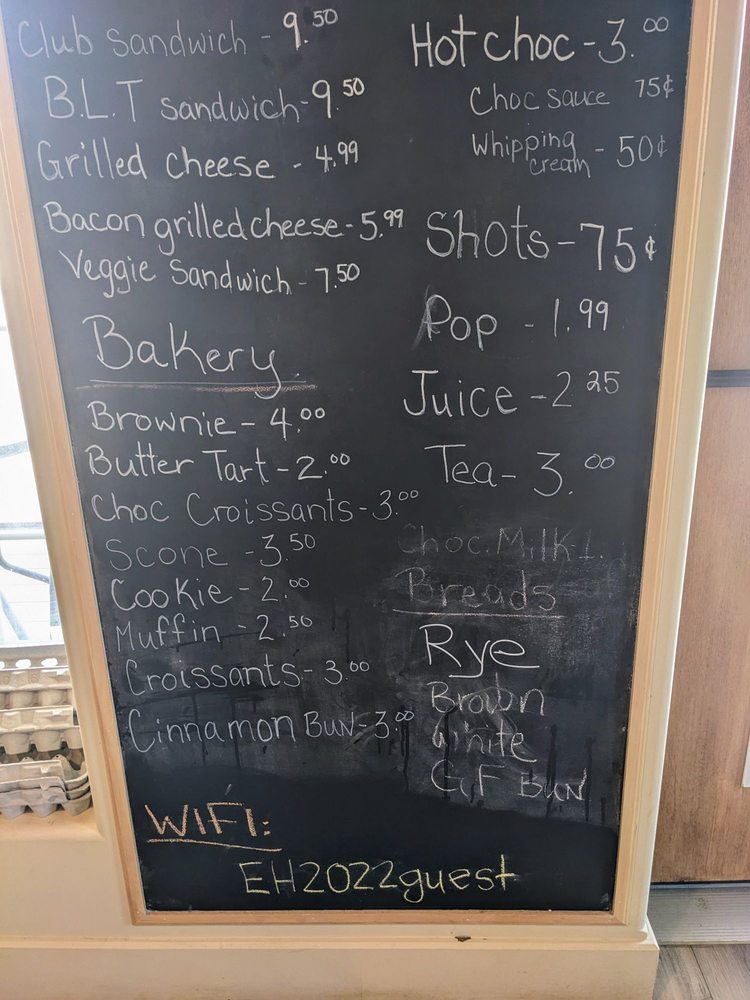 Club sandwich - 9.50
B.L.T sandwich - 9.50
Grilled cheese - 4.99
Bacon grilled cheese - 5.99
Veggie Sandwich - 7.50
Bakery
Brownie - 4.00
Butter Tart - 2.00
Choc Croissants - 3.00
Scone - 3.50
Cookie - 2.00
Muffin - 2.50
Croissants - 3.00
Cinnamon Bun - 3.00
Hot choc - 3.00
Choc sauce 75¢
Whipping
cream - 50¢
Shots - 75¢
Pop - 1.99
Juice - 2.25
Tea - 3.00
Choc. Milk
Breads
Rye
Brown
White
GF Bun
WIFI:
EH2022guest